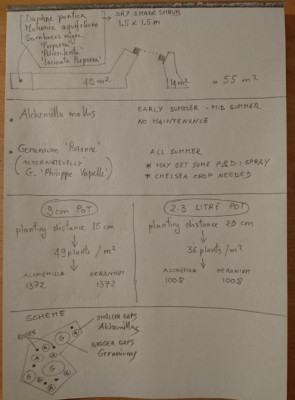 Daphne pontica
Mahonia aquifolium
Sambucus nigra
'Purpurea'
'Pulverulenta'
'Laciniata Purpurea'
DRY SHADE SHRUB
1.5 x 1.5 m
14 m²
= 55 m²
Alchemilla mollis
EARLY SUMMER - MID SUMMER
NO MAINTENANCE
Geranium 'Rozanne'
(ALTERNATIVELY
G. 'Philippe Vapelle')
ALL SUMMER
* MAY GET SOME P&D: SPRAY
* CHELSEA CHOP NEEDED
9cm POT
planting distance 15 cm
49 plants / m²
ALCHEMILLA
GERANIUM
1372
1372
2-3 LITRE POT
planting distance 20 cm
36 plants / m²
ALCHEMILLA
GERANIUM
1008
1008
SCHEME
EDGES
SMALLER GAPS
Alchemillas
BIGGER GAPS
Geraniums
A
G
A
A
G
A
G
G